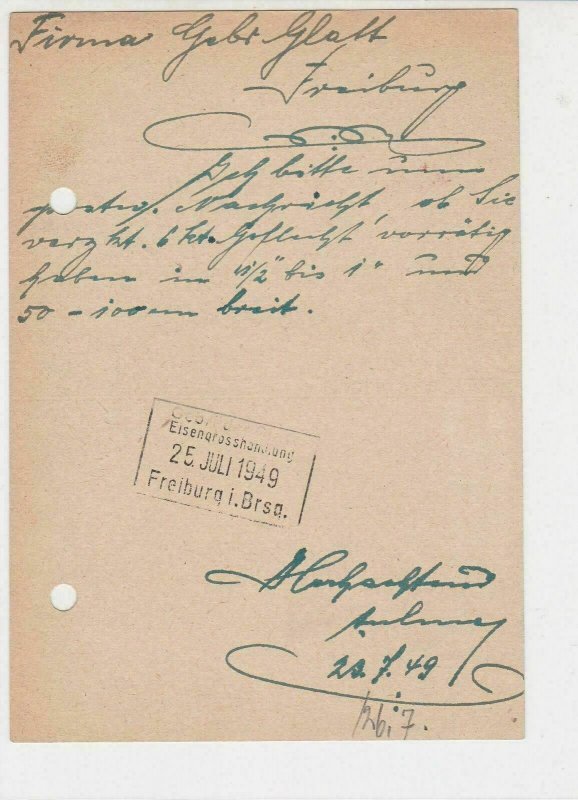 Firma Gebr Glatt
Freiburg
Ich bitte um
postw. Nachricht, ob Sie
verzkt. 6 kt. Geflecht vorrätig
haben in 1/2" bis 1" und
50 - 100 cm breit.
Gebr.
Eisengrosshandlung
25. JULI 1949
Freiburg i. Brsg.
Hochachtend
7. 49
26. 7.